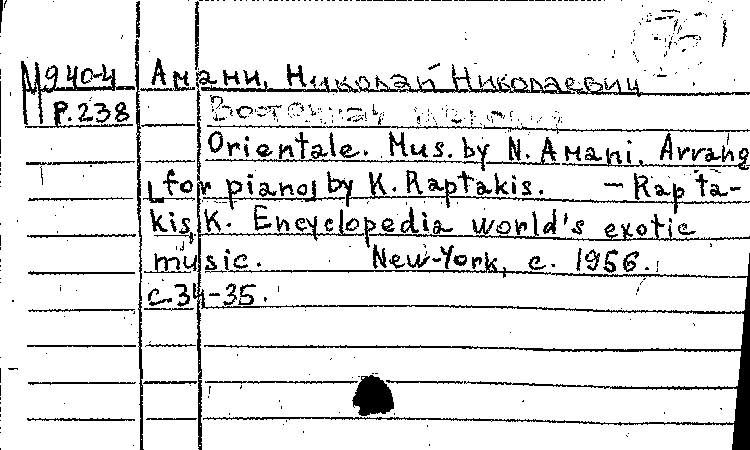 М940-4 Амани, Николай Николаевич
Р.238 Восточная
Orientale. Mus. by N. Амani. Arrang
[for piano] by K. Raptakis. — Rapta-
kis, K. Encyclopedia world's exotic
music. New-York, c. 1956.
c.34-35.